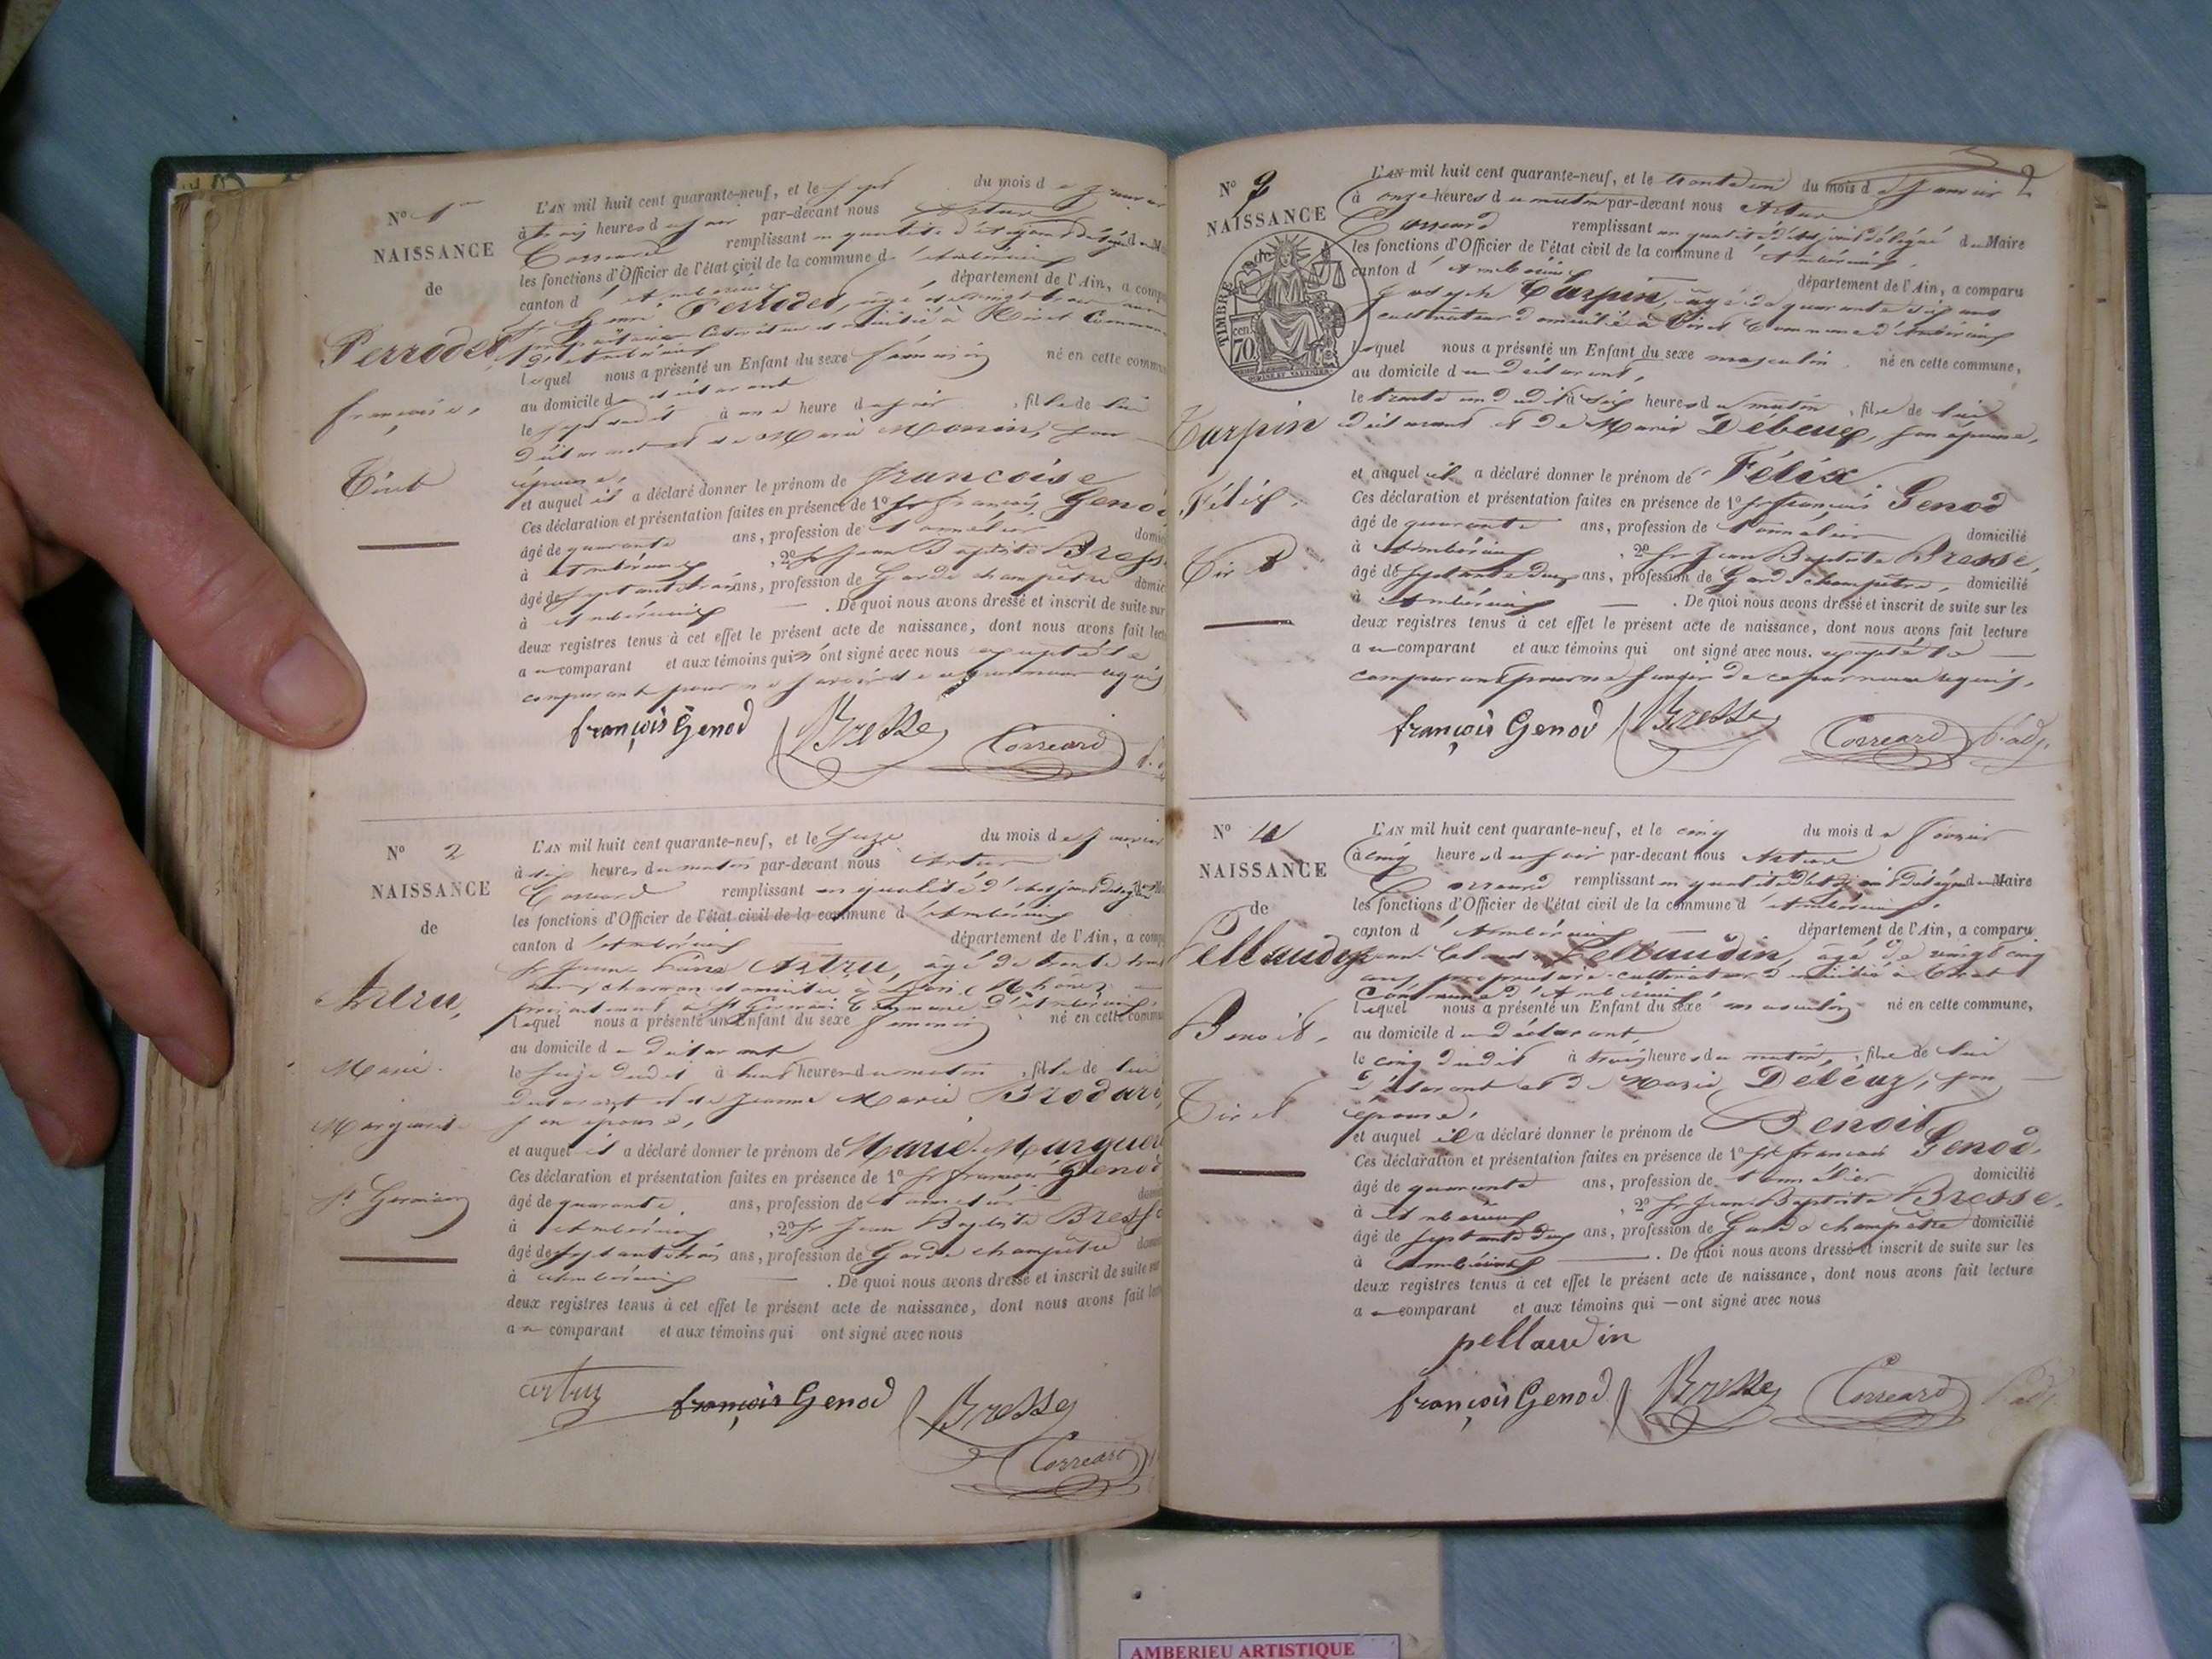 N° 1er
NAISSANCE
de
Perrodet
françoise,
Tiret
L'AN mil huit cent quarante-neuf, et le sept du mois de janvier
à trois heures du soir par-devant nous Artur
Correard remplissant en qualité d'adjoint délégué du
les fonctions d'Officier de l'état civil de la commune d'Ambérieux
canton d'Ambérieux département de l'Ain, a comparu
Sr Perrodet, âgé de
propriétaire Cultivateur domicilié à Tiret Commune
d'Ambérieux
lequel nous a présenté un Enfant du sexe féminin né en cette commune
au domicile du déclarant
le sept dudit à une heure du soir, fille de lui
déclarant et de Marie Monin, son
épouse,
et auquel il a déclaré donner le prénom de francoise
Ces déclaration et présentation faites en présence de 1° Sr françois Genod
âgé de quarante ans, profession de tonnelier
à Ambérieux, 2° Sr Jean Baptiste Bresse
âgé de septante trois ans, profession de Garde champêtre
à Ambérieux — . De quoi nous avons dressé et inscrit de suite sur
deux registres tenus à cet effet le présent acte de naissance, dont nous avons fait lecture
au comparant et aux témoins qui ont signé avec nous excepté le
comparant pour ne savoir de ce par nous requis
françois Genod Bresse Correard
N° 2
NAISSANCE
de
Artru,
Marie
Marguerite
St Germain
L'AN mil huit cent quarante-neuf, et le seize du mois de janvier
à dix heures du matin par-devant nous Artur
Correard remplissant en qualité d'adjoint délégué
les fonctions d'Officier de l'état civil de la commune d'Ambérieux
canton d'Ambérieux département de l'Ain, a comparu
Sr Artru, âgé de trente
domicilié à Lyon (Rhône)
St Germain Commune d'Ambérieux,
lequel nous a présenté un Enfant du sexe féminin né en cette commune
au domicile du déclarant
le seize dudit à heures du matin, fille de lui
déclarant et de Jeanne Marie Brodard,
son épouse,
et auquel il a déclaré donner le prénom de Marie Marguerite
Ces déclaration et présentation faites en présence de 1° Sr françois Genod
âgé de quarante ans, profession de tonnelier
à Ambérieux, 2° Sr Jean Baptiste Bresse
âgé de septante trois ans, profession de Garde champêtre
à Ambérieux — . De quoi nous avons dressé et inscrit de suite sur
deux registres tenus à cet effet le présent acte de naissance, dont nous avons fait lecture
au comparant et aux témoins qui ont signé avec nous
artru françois Genod Bresse
Correard
2
N° 3
NAISSANCE
de
TIMBRE
cen 70
Turpin
Félix.
Tiret
L'AN mil huit cent quarante-neuf, et le trente un du mois de janvier
à onze heures du matin par-devant nous Artur
Correard remplissant en qualité d'adjoint délégué du Maire
les fonctions d'Officier de l'état civil de la commune d'Ambérieux,
canton d'Ambérieux département de l'Ain, a comparu
Joseph Turpin, âgé de quarante six ans
cultivateur domicilié à Tiret Commune d'Ambérieux
lequel nous a présenté un Enfant du sexe masculin né en cette commune,
au domicile du déclarant,
le trente un dudit à six heures du matin, fils de lui
déclarant et de Marie Debeux, son épouse,
et auquel il a déclaré donner le prénom de Félix.
Ces déclaration et présentation faites en présence de 1° Sr françois Genod
âgé de quarante ans, profession de tonnelier domicilié
à Ambérieux, 2° Sr Jean Baptiste Bresse,
âgé de septante deux ans, profession de Garde champêtre, domicilié
à Ambérieux — . De quoi nous avons dressé et inscrit de suite sur les
deux registres tenus à cet effet le présent acte de naissance, dont nous avons fait lecture
au comparant et aux témoins qui ont signé avec nous. excepté le —
comparant pour ne savoir de ce par nous requis,
françois Genod Bresse Correard adj.
N° 4
NAISSANCE
de
Pellaudin
Benoit,
Tiret
L'AN mil huit cent quarante-neuf, et le cinq du mois de février
à cinq heures du soir par-devant nous Artur
Correard remplissant en qualité d'adjoint délégué du Maire
les fonctions d'Officier de l'état civil de la commune d'Ambérieux,
canton d'Ambérieux département de l'Ain, a comparu
Claude Pellaudin, âgé de vingt cinq
ans, propriétaire-cultivateur domicilié à Tiret
Commune d'Ambérieux
lequel nous a présenté un Enfant du sexe masculin né en cette commune,
au domicile du déclarant,
le cinq dudit à trois heures du matin, fils de lui
déclarant et de Marie Débeux, son —
épouse,
et auquel il a déclaré donner le prénom de Benoit
Ces déclaration et présentation faites en présence de 1° Sr françois Genod,
âgé de quarante ans, profession de tonnelier domicilié
à Ambérieux, 2° Sr Jean Baptiste Bresse,
âgé de septante deux ans, profession de Garde champêtre domicilié
à Ambérieux — . De quoi nous avons dressé et inscrit de suite sur les
deux registres tenus à cet effet le présent acte de naissance, dont nous avons fait lecture
au comparant et aux témoins qui — ont signé avec nous
pellaudin
françois Genod Bresse Correard adj.
AMBERIEU ARTISTIQUE